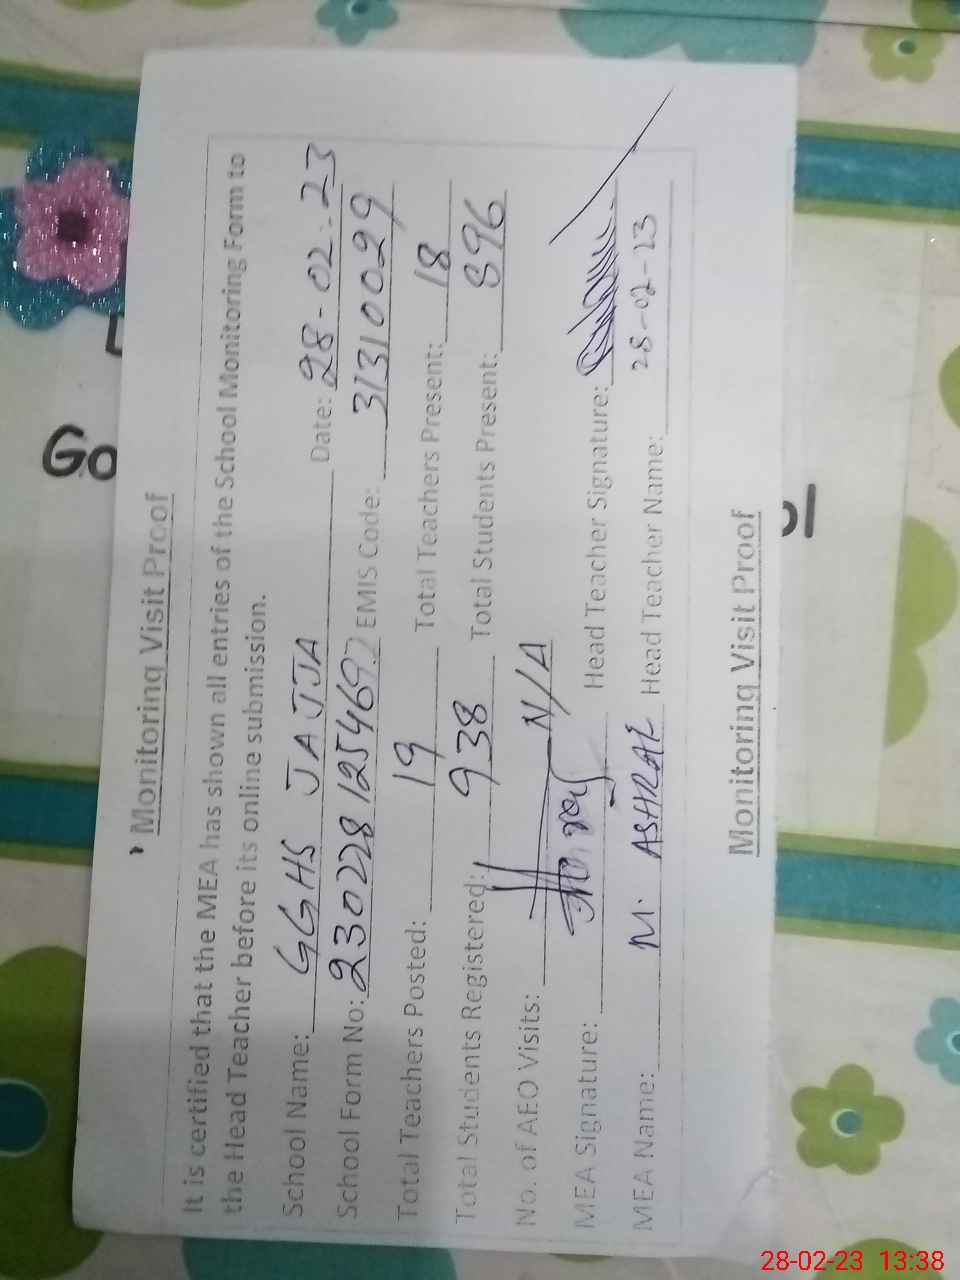 Monitoring Visit Proof
It is certified that the MEA has shown all entries of the School Monitoring Form to
the Head Teacher before its online submission.
School Name: GGHS JAJJA Date: 28-02-23
School Form No: 230228125469 EMIS Code: 31310029
Total Teachers Posted: 19 Total Teachers Present: 18
Total Students Registered: 938 Total Students Present: 896
No. of AEO Visits: N/A
MEA Signature: Head Teacher Signature:
MEA Name: M. ASHRAF Head Teacher Name: 28-02-23
Monitoring Visit Proof
Go
28-02-23 13:38